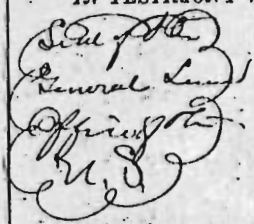 IN TESTIMONY
Seal of the
General Land
Office of the
U.S.